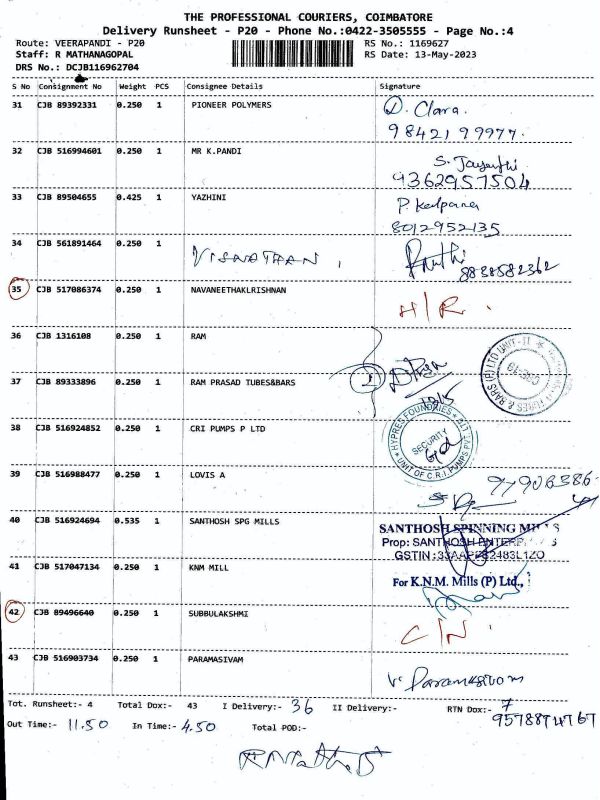 THE PROFESSIONAL COURIERS, COIMBATORE
Delivery Runsheet - P20 - Phone No.:0422-3505555 - Page No.:4
Route: VEERAPANDI - P20 RS No.: 1169627
Staff: R MATHANAGOPAL RS Date: 13-May-2023
DRS No.: DCJB116962704
S No Consignment No Weight PCS Consignee Details Signature
31 CJB 89392331 0.250 1 PIONEER POLYMERS D. Clara
98421 99977.
32 CJB 516994601 0.250 1 MR K.PANDI S. Jayanthi
9362957504
33 CJB 89504655 0.425 1 YAZHINI P. Kalpana
8012952135
34 CJB 561891464 0.250 1 VISWATHAN.
8838582362
35 CJB 517086374 0.250 1 NAVANEETHAKLRISHNAN H/R.
36 CJB 1316108 0.250 1 RAM
37 CJB 89333896 0.250 1 RAM PRASAD TUBES&BARS
TUBES & BARS (P) LTD UNIT-II
CBE-19
38 CJB 516924852 0.250 1 CRI PUMPS P LTD
HYPRES FOUNDRIES
SECURITY
UNIT OF C.R.I PUMPS PVT LTD
39 CJB 516988477 0.250 1 LOVIS A
40 CJB 516924694 0.535 1 SANTHOSH SPG MILLS SANTHOSH SPINNING
Prop: SANTHOSH
GSTIN :
41 CJB 517047134 0.250 1 KNM MILL For K.N.M. Mills (P) Ltd.,
42 CJB 89496640 0.250 1 SUBBULAKSHMI C/N
43 CJB 516903734 0.250 1 PARAMASIVAM V. Paramasivam
Tot. Runsheet:- 4 Total Dox:- 43 I Delivery:- 36 II Delivery:- RTN Dox:- 7
9578874767
Out Time:- 11.50 In Time:- 4.50 Total POD:-